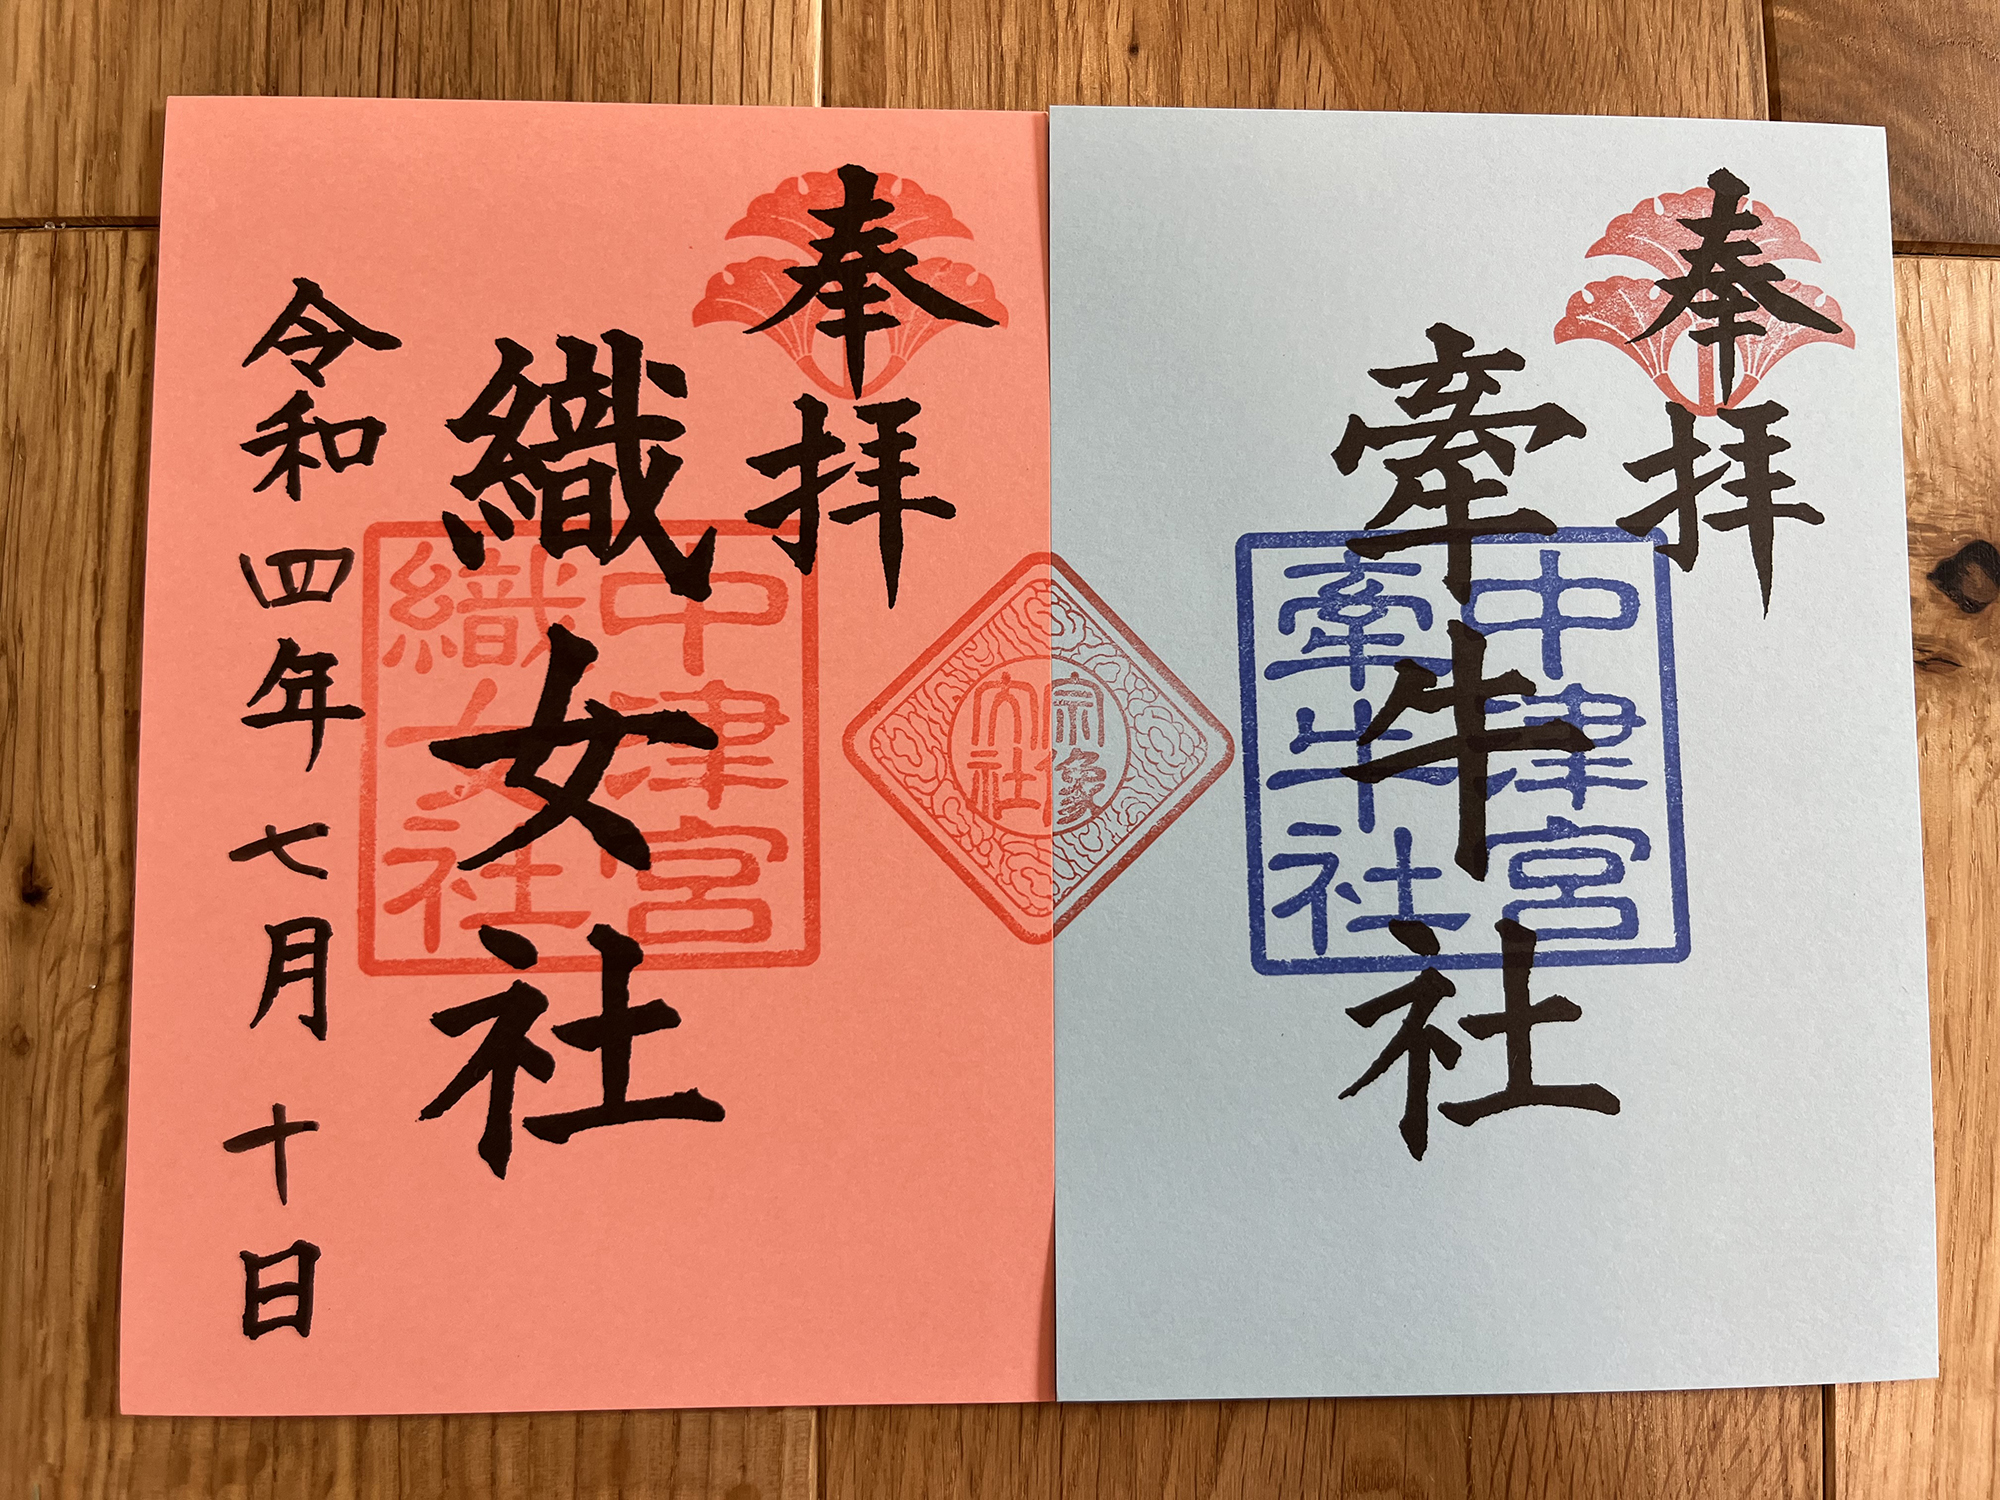 奉拝
牽牛社
中津宮
牽牛社
宗像
大社
奉拝
織女社
中津宮
織女社
令和四年七月十日